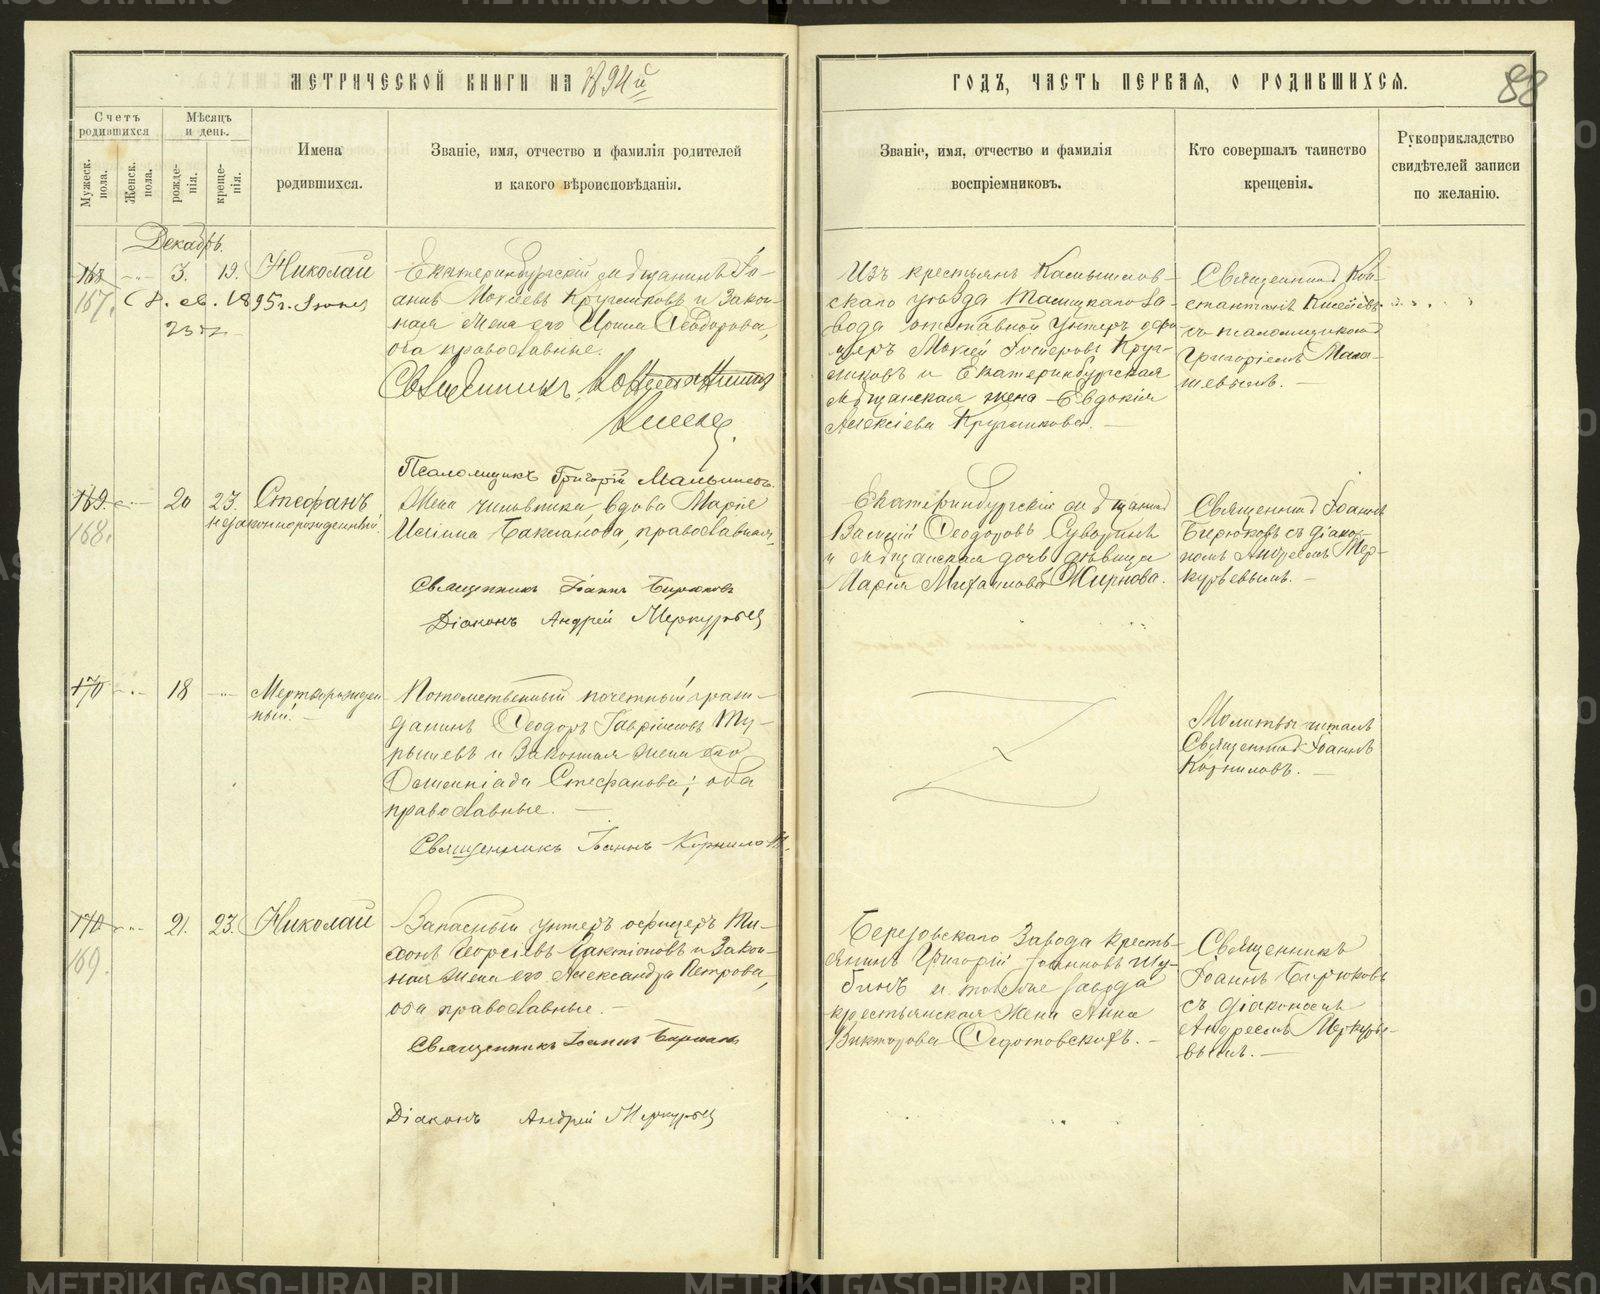 МЕТРИЧЕСКОЙ КНИГИ НА 1894й
ГОДЪ, ЧАСТЬ ПЕРВАЯ, О РОДИВШИХСЯ.
88
Счетъ родившихся
Мужеск. пола.
Женск. пола.
Мѣсяцъ и день.
рожденія.
крещенія.
Имена
родившихся.
Званіе, имя, отчество и фамилія родителей
и какого вѣроисповѣданія.
Званіе, имя, отчество и фамилія
воспріемниковъ.
Кто совершалъ таинство
крещенія.
Рукоприкладство
свидѣтелей записи
по желанію.
Декабрь.
168
167.
3. 19.
Николай
Екатеринбургскій мѣщанинъ Іо-
аннъ Моисеевъ Кругликовъ и закон-
ная жена его Ирина Ѳеодорова,
оба православные.
Священникъ
Псаломщикъ Григорій
Изъ крестьянъ Камышлов-
скаго уѣзда Талицкаго за-
вода отставной унтеръ офи-
церъ Моисей Круг-
ликовъ и Екатеринбургская
мѣщанская жена Евдокія
Алексіева Кругликова.
Священникъ Кон-
стантинъ
съ псаломщикомъ
Григоріемъ
169.
168.
20 23.
Стефанъ
незаконнорожденный.
Жена чиновника, вдова Марія
православная,
Священникъ Іоаннъ Бирюковъ
Діаконъ Андрей Меркурьевъ
Екатеринбургскій мѣщанинъ
Василій Ѳеодоровъ Суворинъ
и мѣщанская дочь дѣвица
Марія Михаилова Жирнова.
Священникъ Іоаннъ
Бирюковъ съ діако-
номъ Андреемъ Мер-
курьевымъ.
170
18
Мертворожден-
ный.
Потомственный почетный граж-
данинъ Ѳеодоръ Гавріиловъ
и законная жена его
Стефанова; оба
православные.
Священникъ Іоаннъ Корниловъ.
Молитвы читалъ
Священникъ Іоаннъ
Корниловъ.
170
169.
21. 23.
Николай
Запасный унтеръ офицеръ Ти-
хонъ Георгіевъ Лактіоновъ и закон-
ная жена его Александра Петрова,
оба православные.
Священникъ Іоаннъ Бирюковъ
Діаконъ Андрей Меркурьевъ
Березовскаго завода кресть-
янинъ Григорій Іоанновъ Шу-
бинъ и того же завода
крестьянская жена Анна
Викторова
Священникъ
Іоаннъ Бирюковъ
съ діакономъ
Андреемъ Меркурье-
вымъ.
METRIKI.GASO-URAL.RU